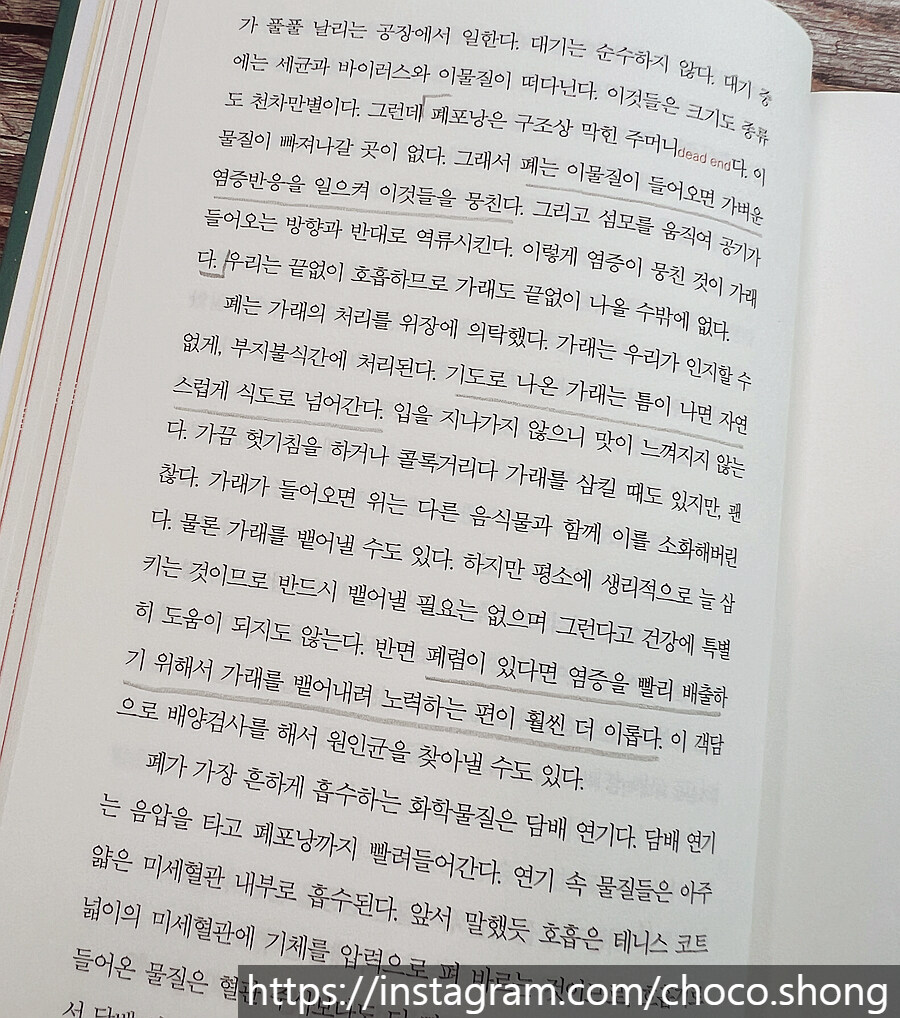 가 풀풀 날리는 공장에서 일한다. 대기는 순수하지 않다. 대기 중
에는 세균과 바이러스와 이물질이 떠다닌다. 이것들은 크기도 종류
도 천차만별이다. 그런데 폐포낭은 구조상 막힌 주머니dead end다. 이
물질이 빠져나갈 곳이 없다. 그래서 폐는 이물질이 들어오면 가벼운
염증반응을 일으켜 이것들을 뭉친다. 그리고 섬모를 움직여 공기가
들어오는 방향과 반대로 역류시킨다. 이렇게 염증이 뭉친 것이 가래
다. 우리는 끝없이 호흡하므로 가래도 끝없이 나올 수밖에 없다.
폐는 가래의 처리를 위장에 의탁했다. 가래는 우리가 인지할 수
없게, 부지불식간에 처리된다. 기도로 나온 가래는 틈이 나면 자연
스럽게 식도로 넘어간다. 입을 지나가지 않으니 맛이 느껴지지 않는
다. 가끔 헛기침을 하거나 콜록거리다 가래를 삼킬 때도 있지만, 괜
찮다. 가래가 들어오면 위는 다른 음식물과 함께 이를 소화해버린
다. 물론 가래를 뱉어낼 수도 있다. 하지만 평소에 생리적으로 늘 삼
키는 것이므로 반드시 뱉어낼 필요는 없으며 그런다고 건강에 특별
히 도움이 되지도 않는다. 반면 폐렴이 있다면 염증을 빨리 배출하
기 위해서 가래를 뱉어내려 노력하는 편이 훨씬 더 이롭다. 이 객담
으로 배양검사를 해서 원인균을 찾아낼 수도 있다.
폐가 가장 흔하게 흡수하는 화학물질은 담배 연기다. 담배 연기
는 음압을 타고 폐포낭까지 빨려들어간다. 연기 속 물질들은 아주
얇은 미세혈관 내부로 흡수된다. 앞서 말했듯 호흡은 테니스 코트
넓이의 미세혈관에 기체를 압력으로 펴 바르는
들어온 물질은 혈관
서 담배
https://instagram.com/choco.shong